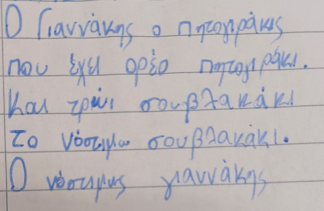 Ο Γιαννάκης ο πητογιράκις
που έχει ορέο πητογιράκι.
Και τρώι σουβλακάκι
το νόστιμω σουβλακάκι.
Ο νόστιμης γιαννάκης